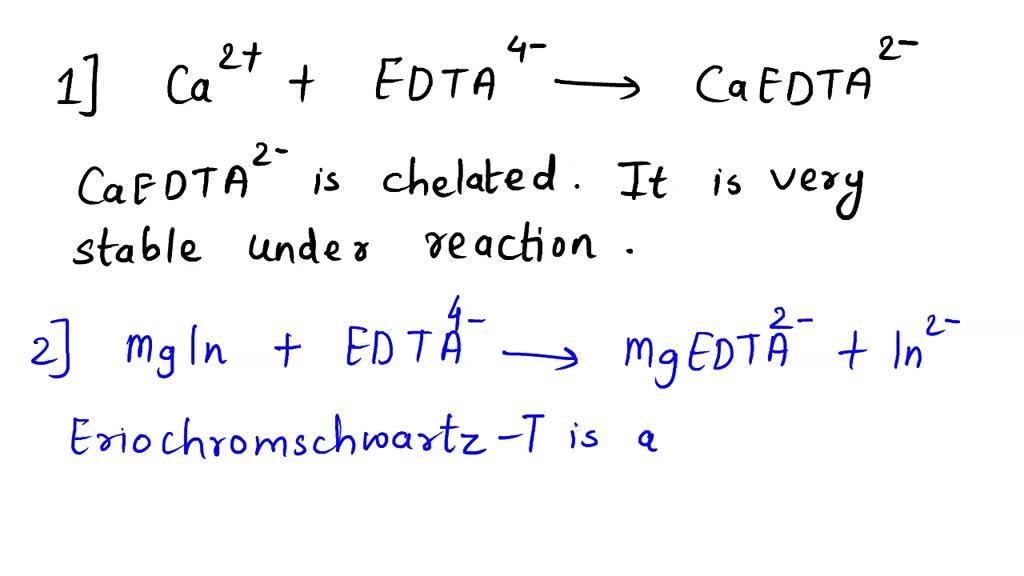 1] Ca²⁺ + EDTA⁴⁻ → CaEDTA²⁻
CaEDTA²⁻ is chelated. It is very
stable under reaction.
2] MgIn + EDTA⁴⁻ → MgEDTA²⁻ + In²⁻
Eriochromschwartz-T is a